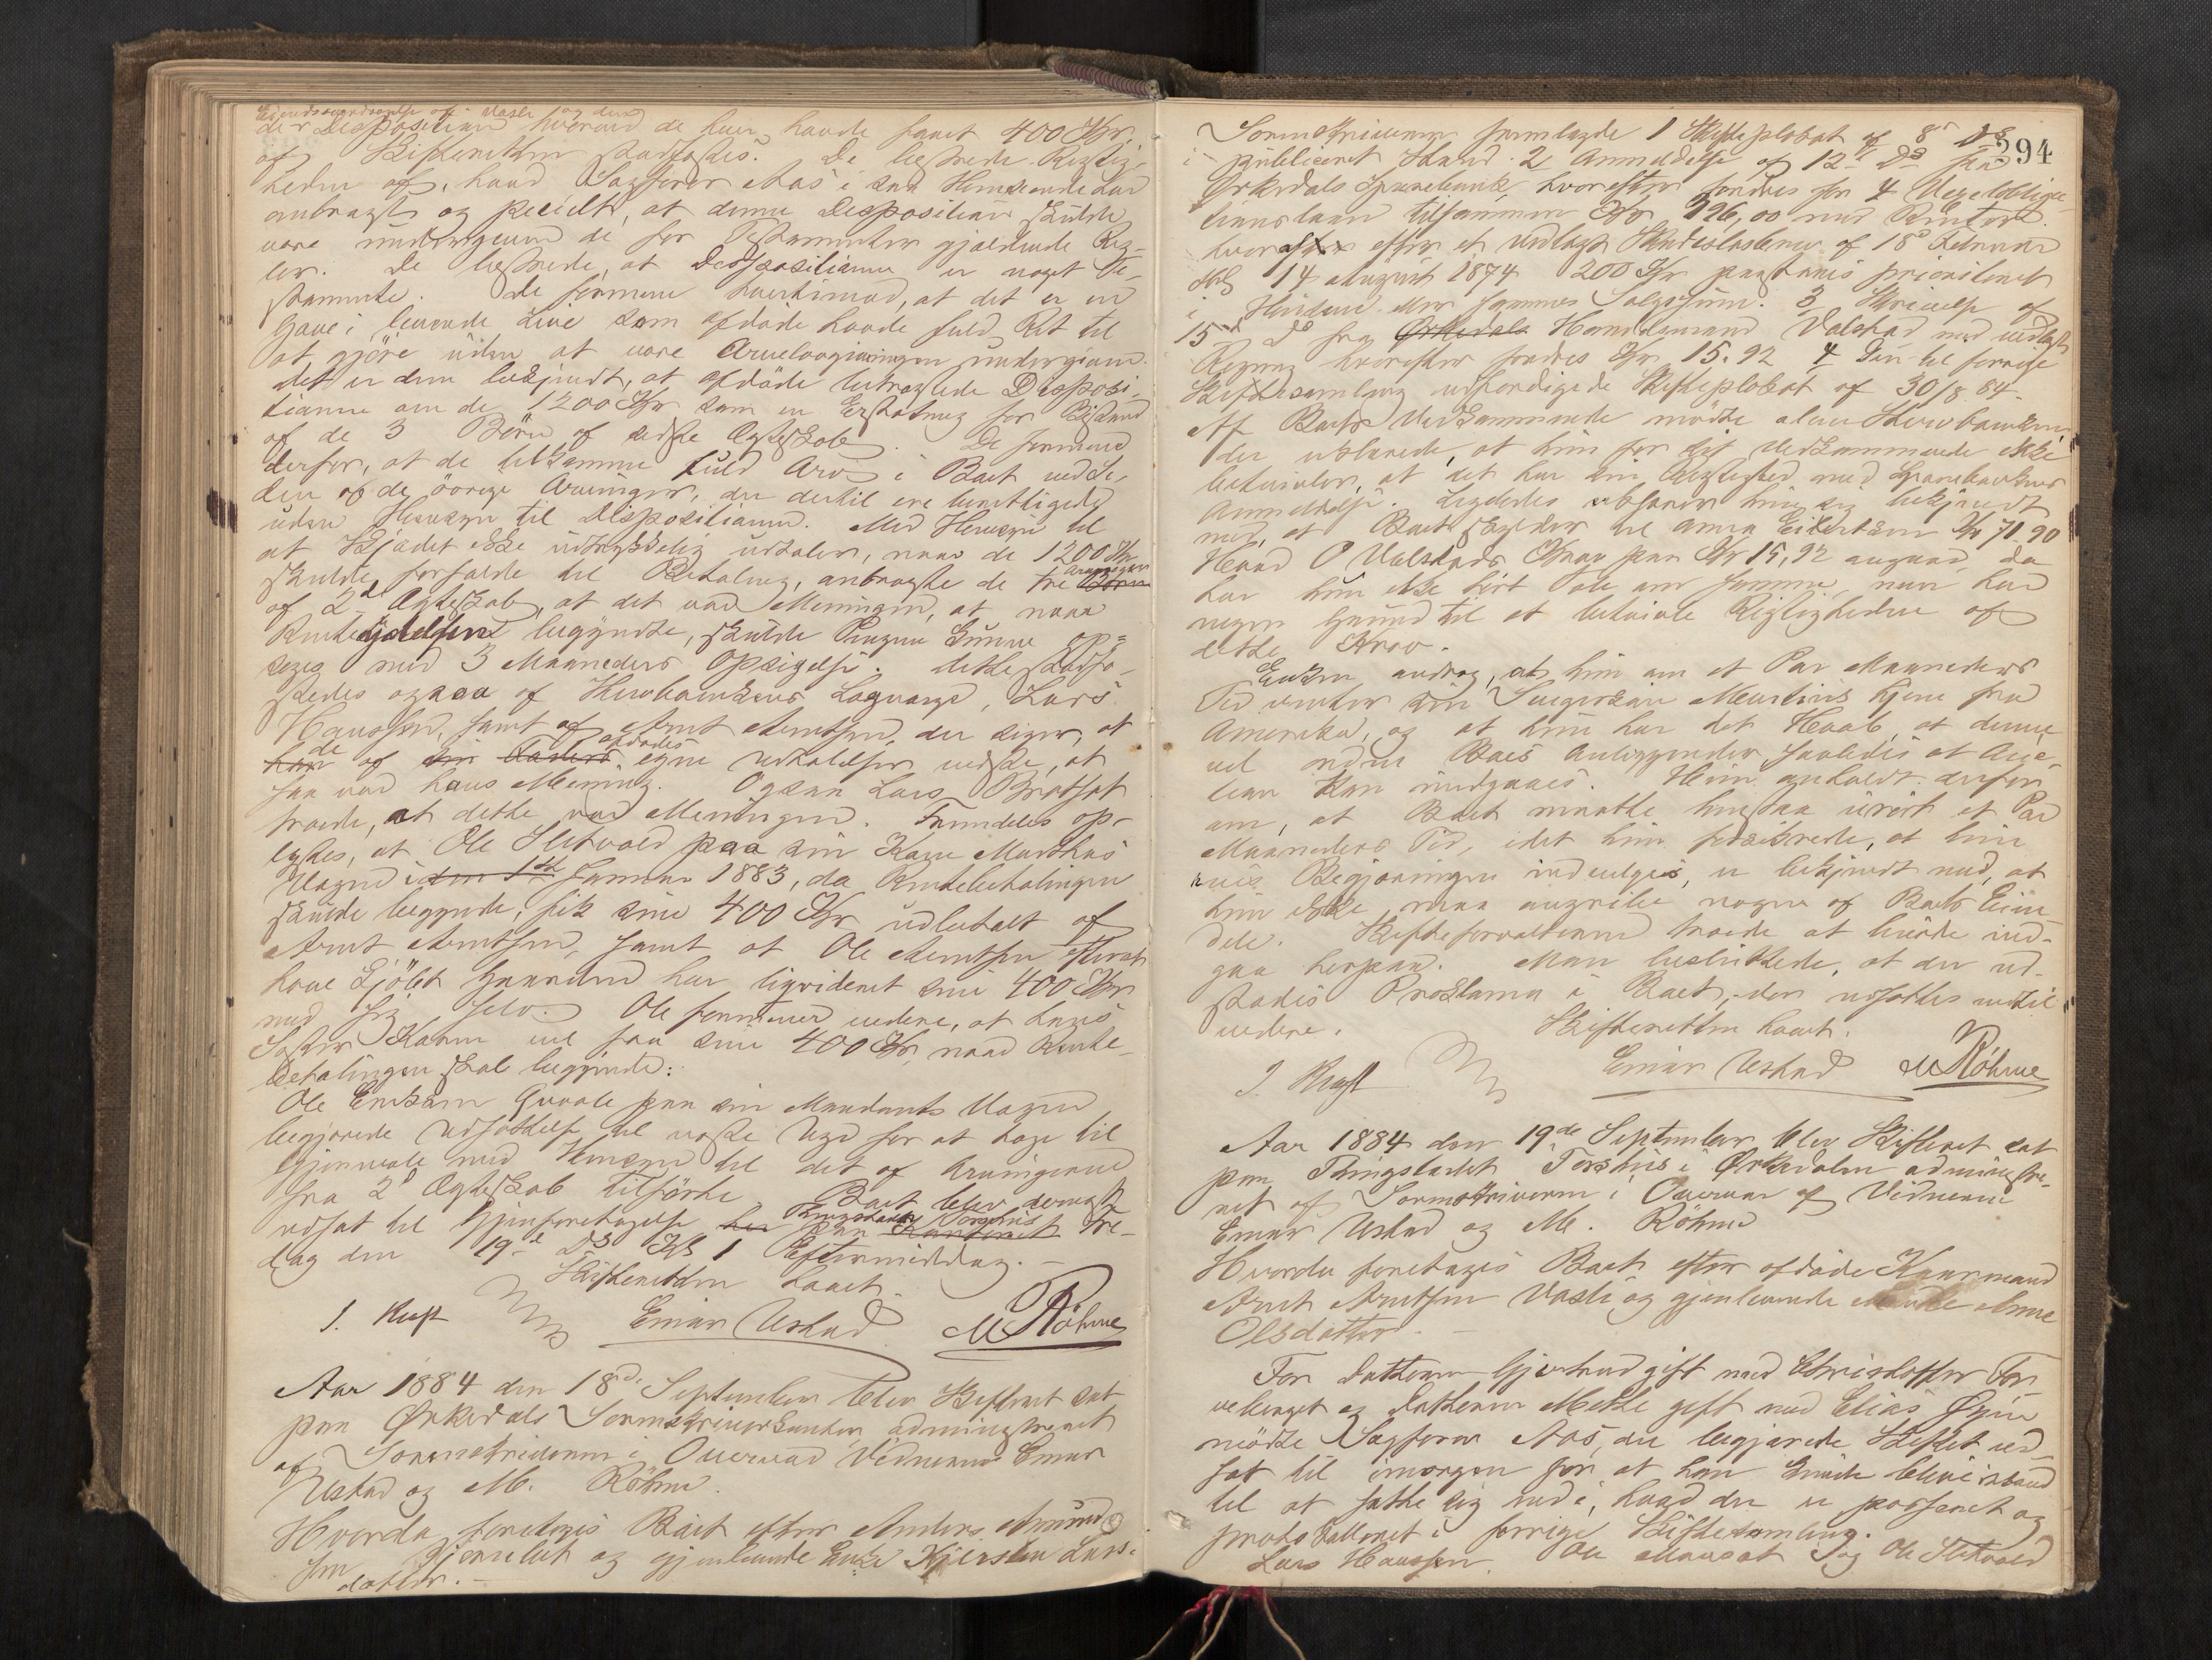 Eiendsoverdragelse af Vasli og den
der Disposition hvorved de hver havde faaet 400 Kr,
af Skifteretten stadfæstes. De bestrede Rigtig-
heden af, hvad Sagfører Aas i saa Henseende har
anbragt og specielt, at denne Disposition skulde
være undergivet de for Testamenter gjældende Reg-
ler. De bestrede, at Dispositionen er noget Te-
stamente. De formene tvertimod, at det er en
Gave i levende Live som afdøde havde fuld Ret til
at gjöre uden at være Arvelovgivningen undergiven.
Det er dem bekjendt, at afdöde betragtede Disposi-
tionen om de 1200 Kr som en Erstatning for Bistand
af de 3 Börn af sidste Ægteskab. De formene
derfor, at de tilkomme fuld Arv i Boet ved Si-
den af de övrige Arvinger, der dertil ere berettigede
uden Hensyn til Dispositionen. Med Hensyn til
at Skjødet ikke udtrykkelig udtaler, naar de 1200 Kr
skulde forfalde til Betaling, anbragte de tre Börn Arvinger
af 2d Ægteskab, at det var Meningen, at naar
Rente begyndte, skulde Pengene kunne op-
siges med 3 Maaneders Opsigelse. Dette stadfæ-
stedes ogsaa af Hovbankens Laugvarge, Lars
Hanssen, samt af Arnt Arntsen, der siger, at
han de af sin Faders afdødes egne Udtalelser vidste, at
saa var hans Mening. Ogsaa Lars Bratset
troede, at dette var Meningen. Fremdeles op-
lystes, at Ole Sletvold paa sin Kone Marthas
Vegne i den 1ste Januar 1883, da Rentebetalingen
skulde begynde, fik sine 400 Kr udbetalt af
Arnt Arntsen, samt at Ole Arntsen efter at
have kjöbt Gaarden har ligvideret sine 400 Kr
med sig selv. Ole formener videre, at hans
Søster Karen vil faa sine 400 Kr, naar Rente-
betalingen skal begynde:
Ole Eriksen Qvaale paa sin Mandants Vegne
begjærede Udsættelse til næste Uge for at tage til
Gjenmæle med Hensyn til det af Arvingerne
fra 2d Ægteskab tilförte. Boet blev dernæst
udsat til Gjenforetagelse her paa Kontoret Thingstedet Torshus Fre-
dag den 19de Ds Kl 1 Eftermiddag.-
Skifteretten hævet.
I. Einar Ustad M Röhme
Aar 1884 den 18de September blev Skifteret sat
paa Ørkedals Sorenskriverkontor, administreret
af Sorenskriveren i Overvær Vidnerne Einar
Ustad og M. Röhme.
Hvorda foretoges Boet efter Anders Amund
sen og gjenlevende Enke Kjersten Lars-
datter.-
394
Sorenskriveren fremlagde 1 Skifteplakat af 8de Ds
i publiceret Stand. 2 Anmeldelse af 12te Ds fra
Ørkedals Sparebank, hvorefter fordres for 4 Vexelobliga-
tionslaan tilsammen Kr 796,00 med Renter
hvoraf efter et vedlagt Skadesløsbrev af 18 Februar
14 August 1874 200 Kr paastaaes prioriteret
i Huudene eller sammes Salgssum. 3 Skrivelse af
15de Ds fra Ørkedals Handelsmand Valstad med vedlagt
Regning hvorefter fordres Kr 15.92 4 Den til forrige
Skiftesamling udfærdigede Skifteplakat af 30/8 84.
Af Boets Vedkommende mødte alene
der erklærede, at hun for sit Vedkommende ikke
betvivler, at det har sin Rigtighed med Sparebankens
Anmeldelse. Ligeledes erklærer hun sig bekjendt
med, at Boet skylder til Anna Eilertsen Kr 71.90
Hvad O Valstads Krav paa Kr 15,92 angaar, da
har hun ikke hørt Tale om samme, men har
ingen Grund til at betvivle Rigtigheden af
dette Krav.
Enken androg, at hun om et Par Maaneders
Tid venter sin Svigersøn Martinus hjem fra
Amerika, og at hun har det Haab, at denne
vil ordne Boes Anliggender saaledes at Auc-
tion kan undgaaes. Hun anholdt derfor
om, at Boet maatte henstaa urørt et Par
Maaneders Tid, idet hun forsikrede, at hun
hvis Begjæringen indvilges, er bekjendt med, at
hun ikke maa angribe nogen af Boets Eien-
dele. Skifteforvalteren troede at burde ind-
gaa herpaa. Man besluttede, at der ud-
stædes Proklama i Boet, der udsættes indtil
videre. Skifteretten hævet.
I. Einar Ustad M Röhme
Aar 1884 den 19de September blev Skifteret sat
paa Thingstedet Torshus i Ørkedalen administre-
ret af Sorenskriveren i Overvær af Vidnerne
Einar Ustad og M. Röhme
Hvorda foretoges Boet efter afdøde Kaarmand
Arnt Arntsen Vasli og gjenlevende Enke Anne
Olsdatter.-
For Datteren Gjertrud gift med Christoffer
og Datteren Mette gift med Elias
mödte Sagfører Aas, der begjærede Skiftet ud-
sat til imorgen for at han kunde blive istand
til at sætte sig ind i, hvad der er passeret og
protokolleret i forrige Skiftesamling.
Lars Hanssen, Ole og Ole Sletvold